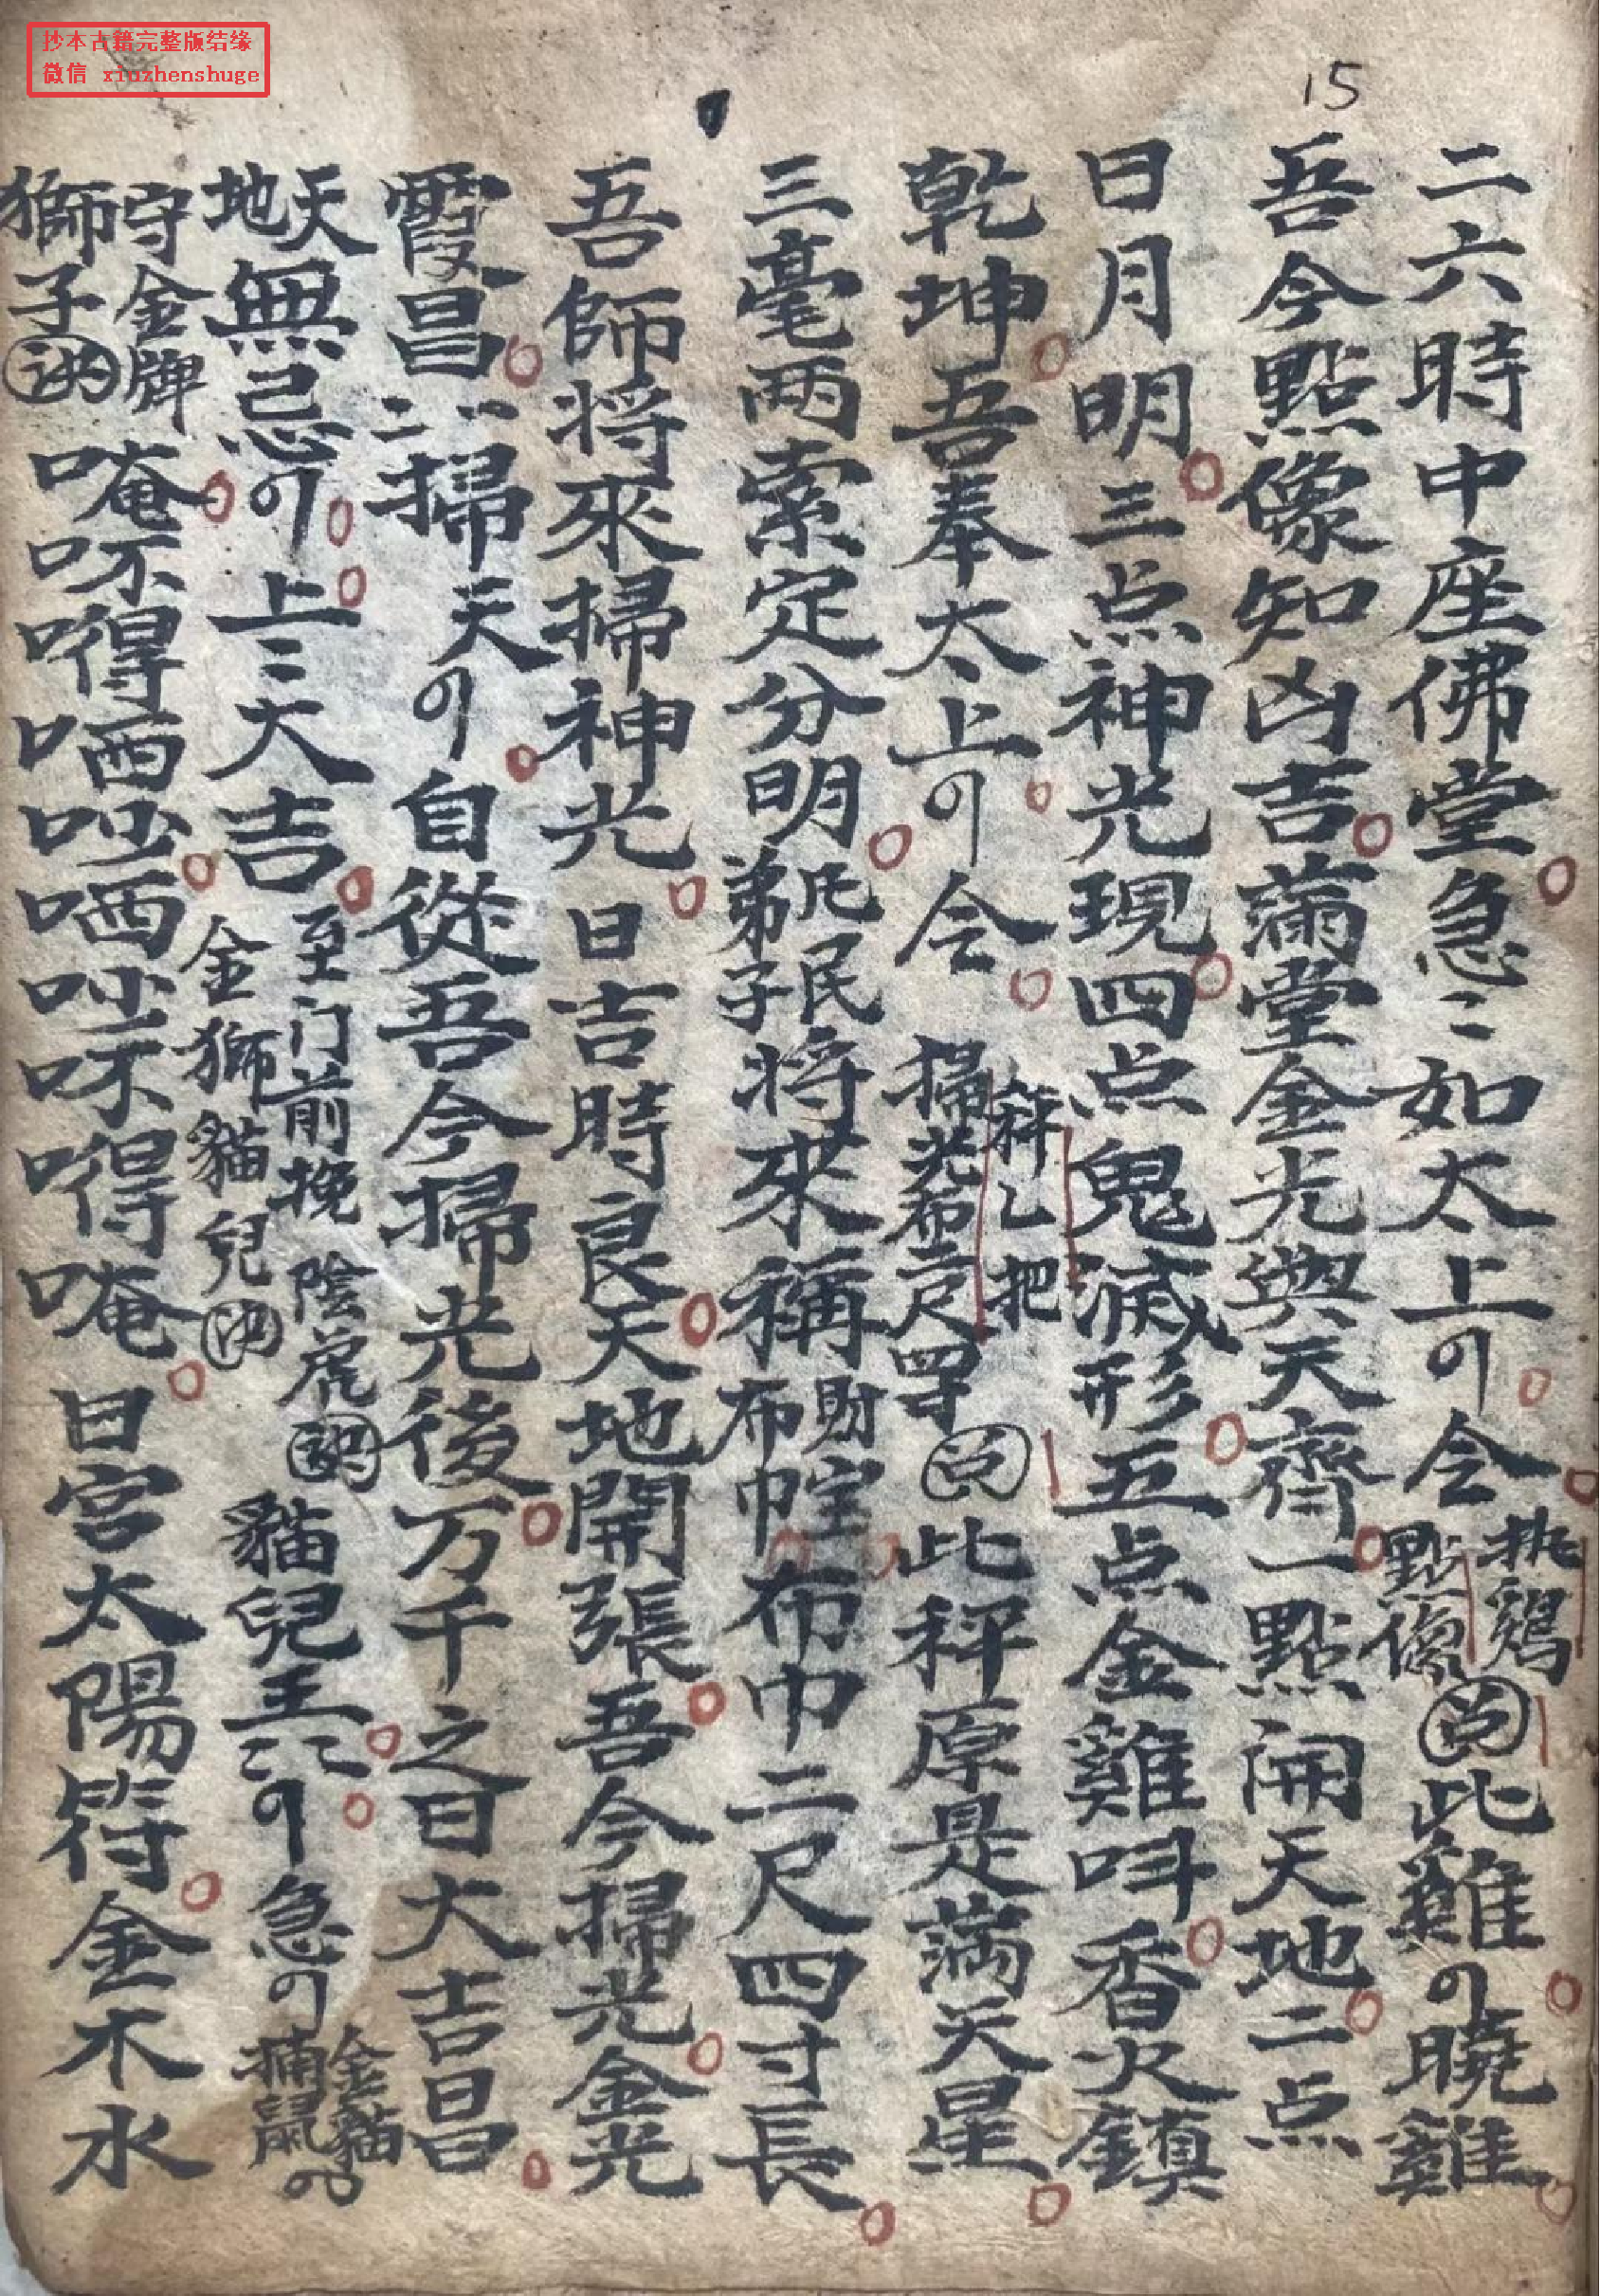 抄本古籍完整版结缘
微信 xiuzhenshuge
15
二六時中座佛堂急〻如太上の令 执鷄 點像 此雞の曉雞
吾今點像知凶吉滿堂金光與天齊一點開天地二点
日月明三点神光現四点鬼滅形五点金雞呌香火鎮
乾坤吾奉太上の令 秤乙把 掃光布二尺四寸 此秤原是滿天星
三毫兩索定分明 弟子 民 将來稱 財宝 布巾 布巾二尺四寸長
吾師将來掃神光日吉時良天地開張吾今掃光金光
霞昌〻〻掃天の自從吾今掃光後万千之日大吉昌
天地無忌の上〻大吉 至门前挽陰虎訣 金獅貓兒訣 貓兒王〻〻の急の 金貓捕鼠の
守金牌 獅子訣 唵吥嘚哂吵哂吵吥嘚唵日宮太陽符金木水